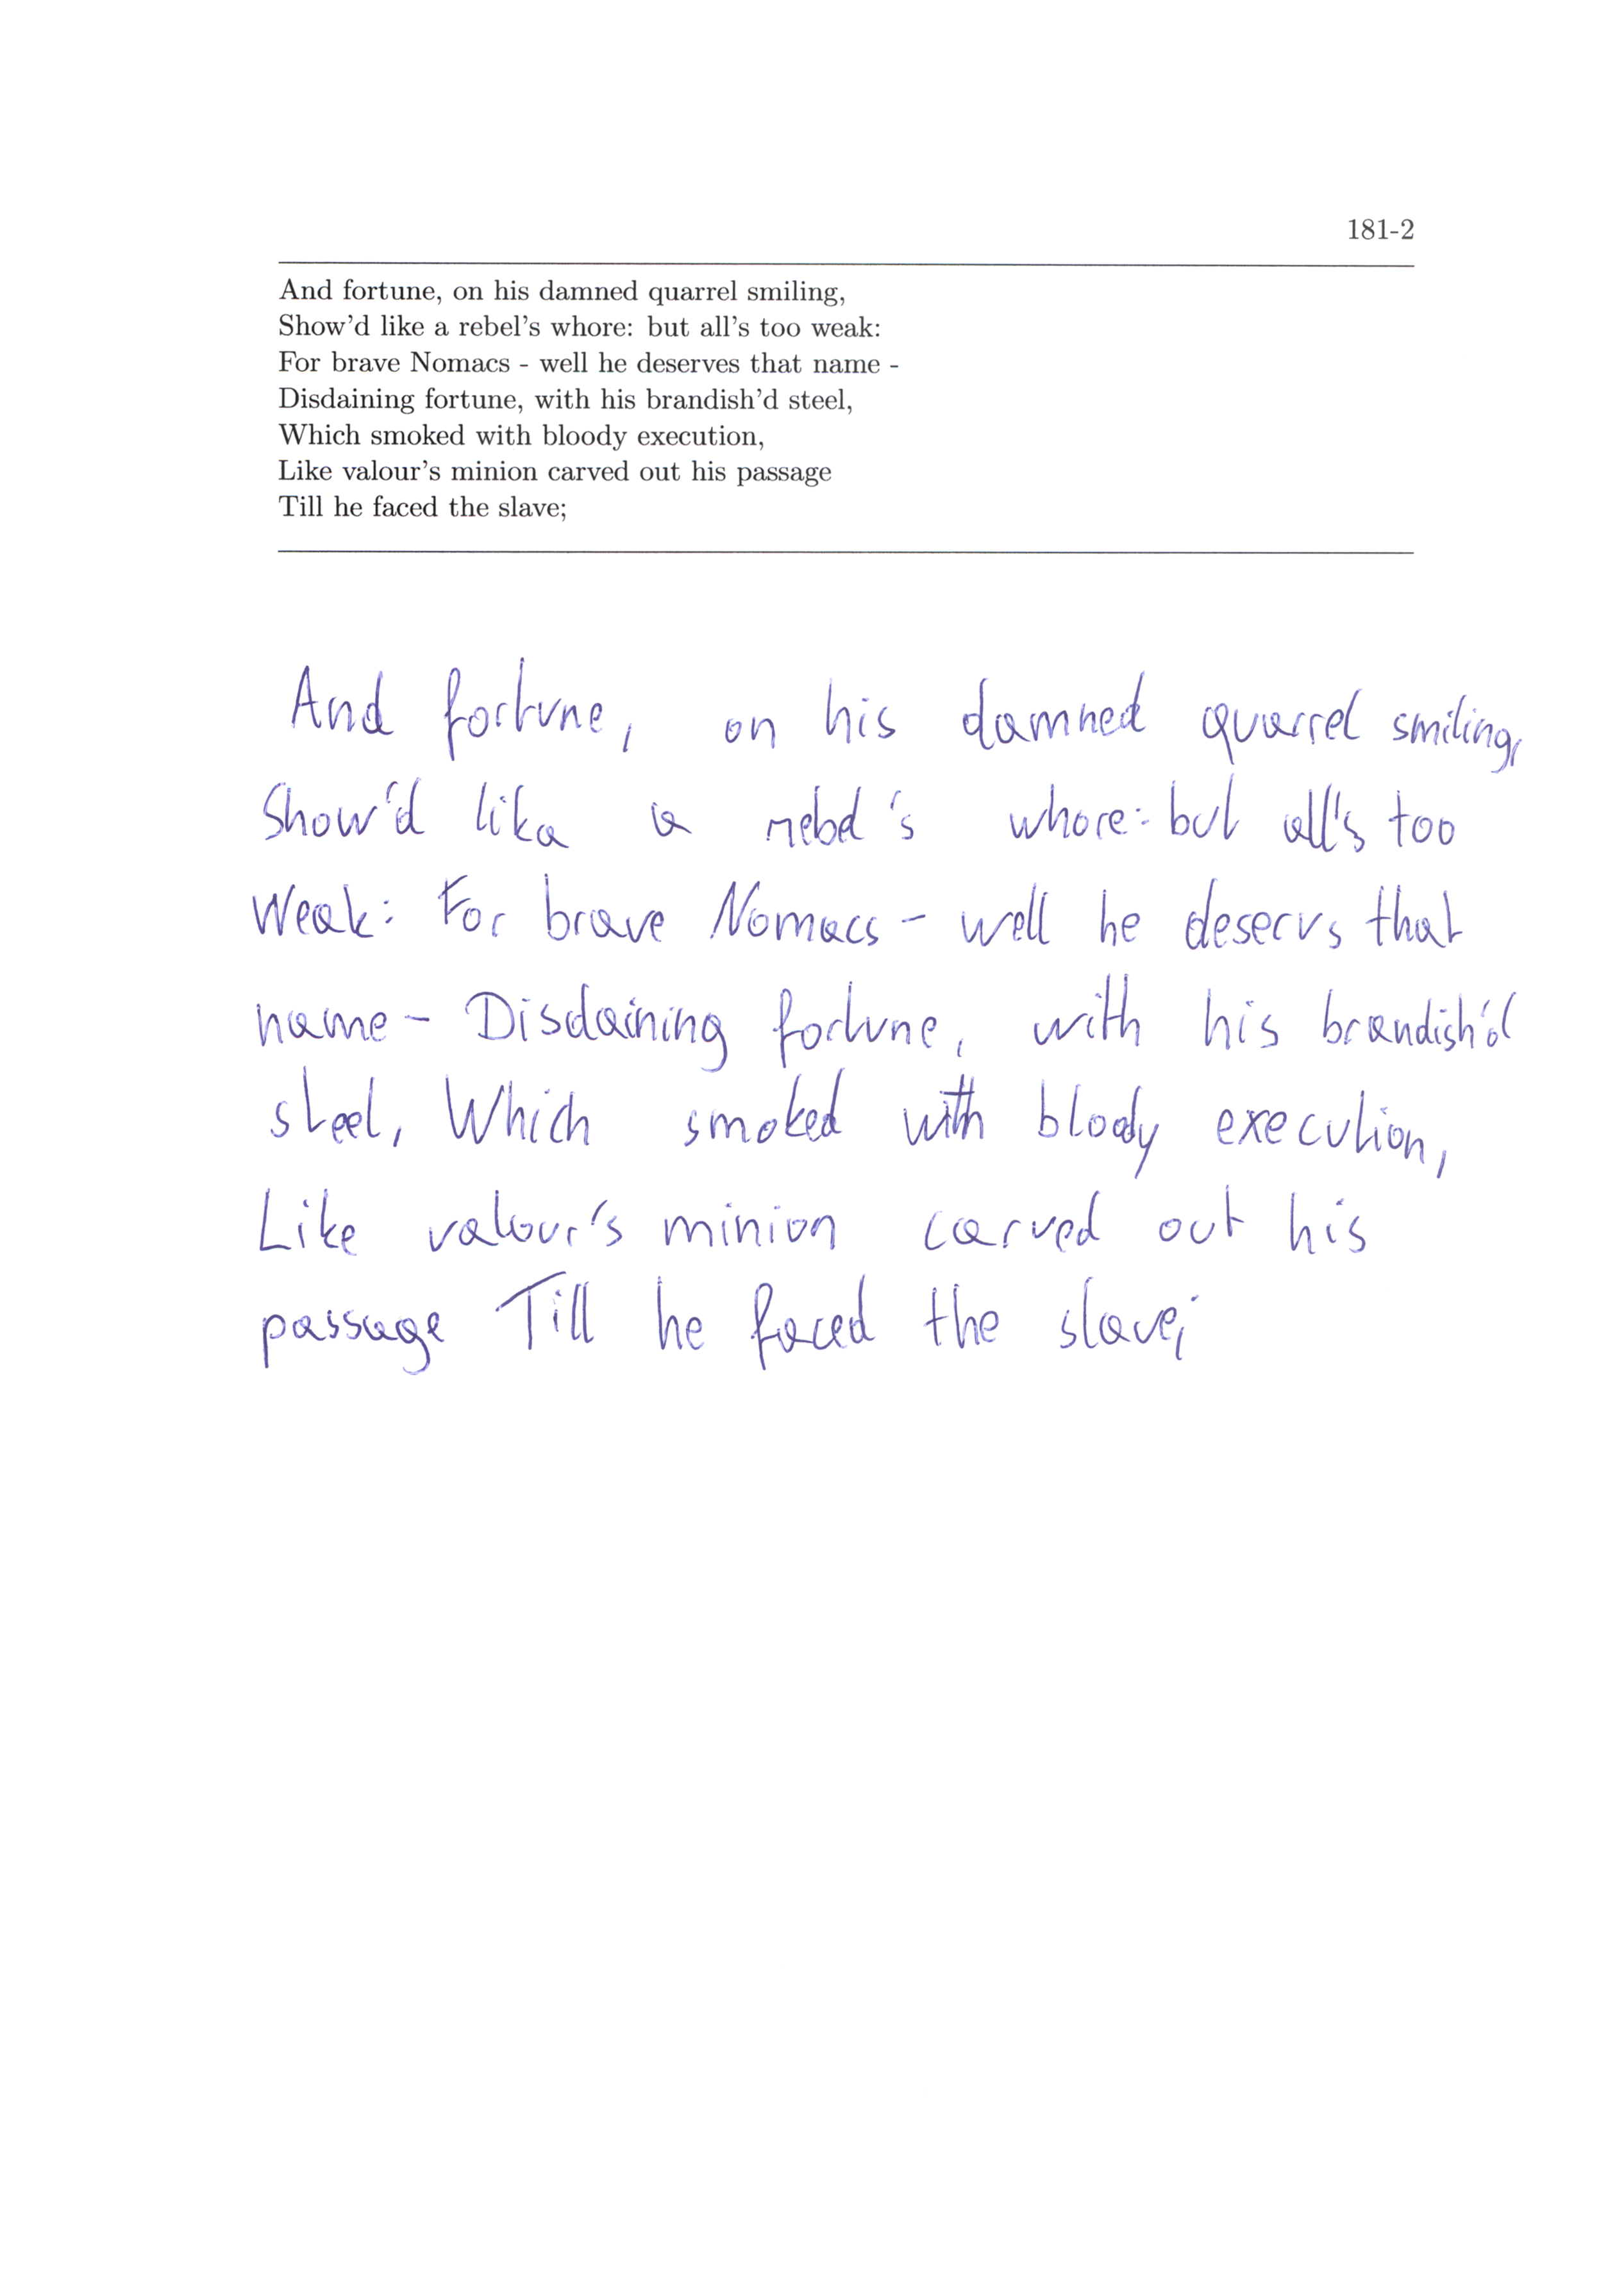 181-2
And fortune, on his damned quarrel smiling,
Show'd like a rebel's whore: but all's too weak:
For brave Nomacs - well he deserves that name -
Disdaining fortune, with his brandish'd steel,
Which smoked with bloody execution,
Like valour's minion carved out his passage
Till he faced the slave;
And fortune, on his damned quarrel smiling,
Show'd lika a rebel's whore: but all's too
Weak: For brave Nomacs - well he deservs that
name - Disdaining fortune, with his brandish'd
steel, Which smoked with bloody execution,
Like valour's minion carved out his
passage Till he faced the slave;